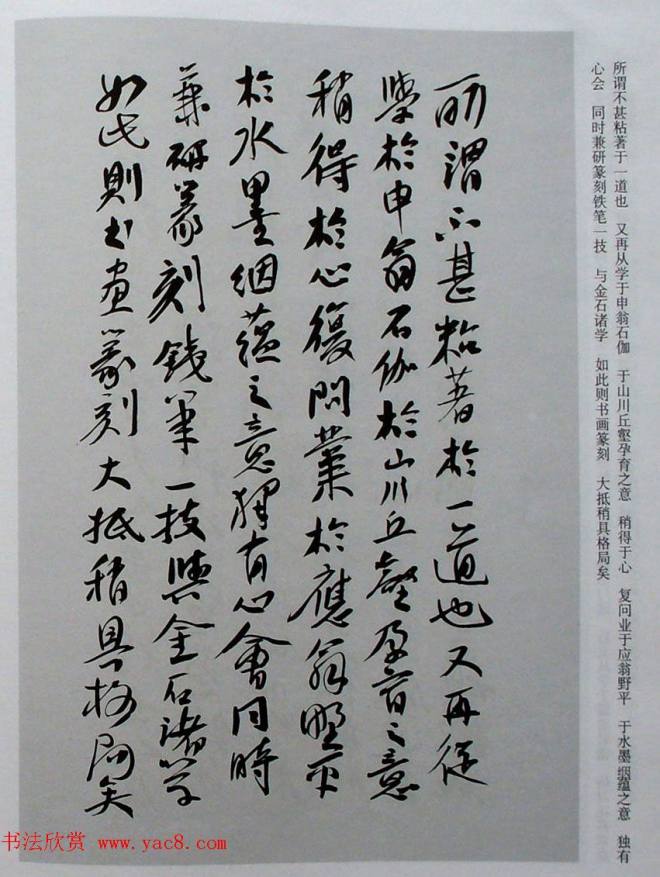 所谓不甚粘著于一道也　又再从学于申翁石伽　于山川丘壑孕育之意　稍得于心　复问业于应翁野平　于水墨絪蕴之意　独有
心会　同时兼研篆刻铁笔一技　与金石诸学　如此则书画篆刻　大抵稍具格局矣
所謂不甚粘著於一道也又再從
學於申翁石伽於山川丘壑孕育之意
稍得於心復問業於應翁野平
於水墨絪蘊之意獨有心會同時
兼研篆刻鐵筆一技與金石諸學
如此則書畫篆刻大抵稍具格局矣
书法欣赏 www.yac8.com